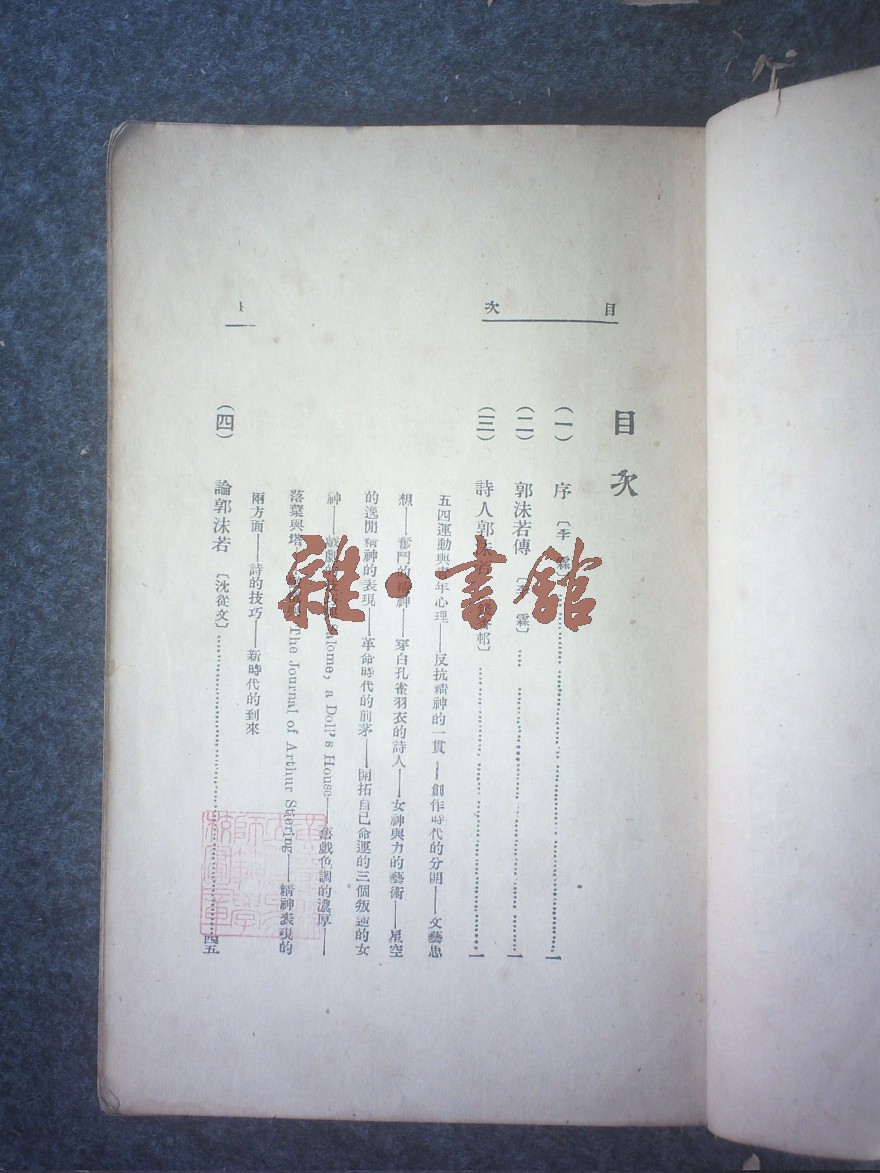 目　　次
目次
(一)　序〔李　霖〕……一
(二)　郭沫若傳〔李　霖〕……一
(三)　詩人郭沫若……邨〕……一
五四運動與青年心理——反抗精神的一貫——創作時代的分開——文藝思
想——奮鬥的精神——穿白孔雀羽衣的詩人——女神與力的藝術——星空
的逸閒精神的表現——革命時代的前茅——開拓自己命運的三個叛逆的女
神——戲劇 Salome, a Doll's House——舊戲色調的濃厚——
落葉與塔 The Journal of Arthur Stiering——精神表現的
兩方面——詩的技巧——新時代的到來
(四)　論郭沫若〔沈從文〕……四五
雜·書館